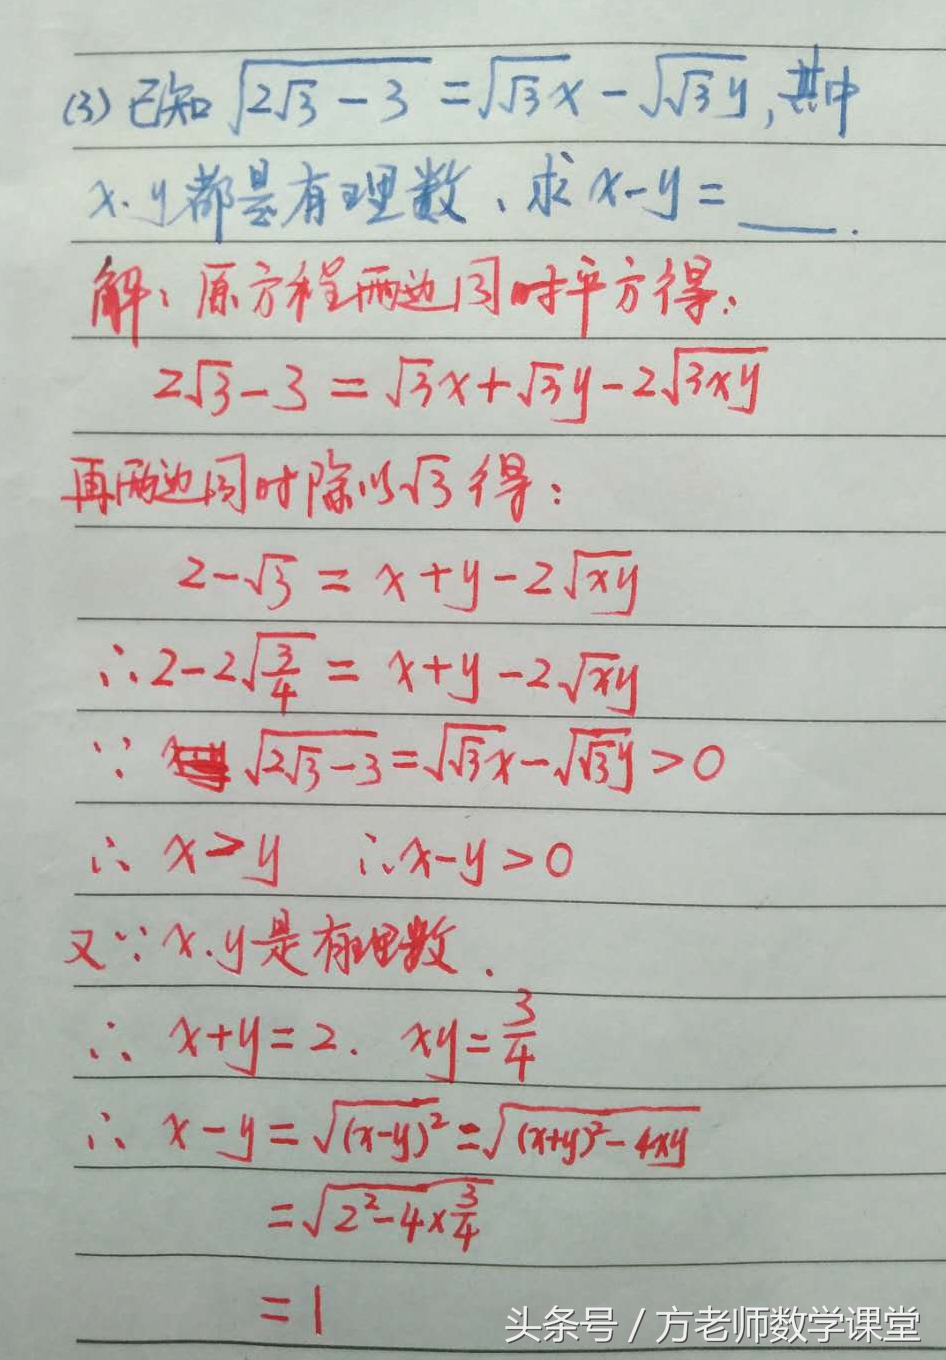 (3) 已知 √(2√3 - 3) = √(√3x) - √(√3y), 其中
x.y都是有理数、求 x-y = ___.
解: 原方程两边同时平方得:
2√3 - 3 = √3x + √3y - 2√(3xy)
再两边同时除以√3得:
2 - √3 = x + y - 2√(xy)
∴ 2 - 2√(3/4) = x + y - 2√(xy)
∵ √(2√3 - 3) = √(√3x) - √(√3y) > 0
∴ x > y ∴ x - y > 0
又∵ x.y是有理数.
∴ x + y = 2. xy = 3/4
∴ x - y = √((x-y)²) = √((x+y)² - 4xy)
= √(2² - 4 × 3/4)
= 1
头条号 / 方老师数学课堂